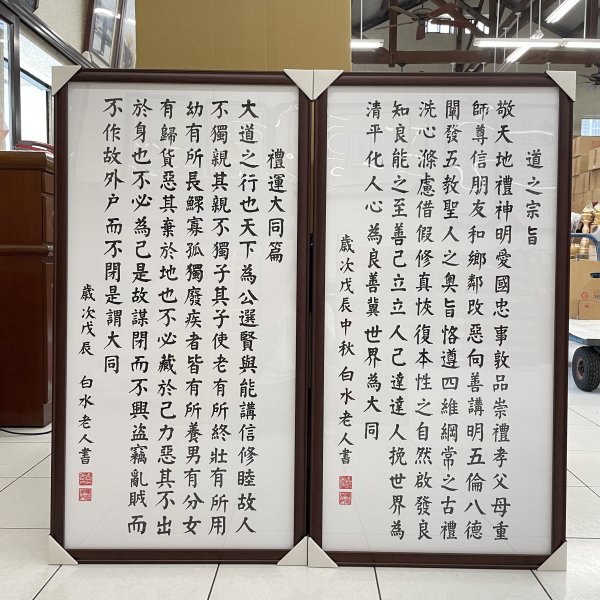 道之宗旨
敬天地禮神明愛國忠事敦品崇禮孝父母重
師尊信朋友和鄉鄰改惡向善講明五倫八德
闡發五教聖人之奧旨恪遵四維綱常之古禮
洗心滌慮借假修真恢復本性之自然啟發良
知良能之至善己立立人己達達人挽世界為
清平化人心為良善冀世界為大同
歲次戊辰中秋 白水老人書
禮運大同篇
大道之行也天下為公選賢與能講信修睦故人
不獨親其親不獨子其子使老有所終壯有所用
幼有所長鰥寡孤獨廢疾者皆有所養男有分女
有歸貨惡其棄於地也不必藏於己力惡其不出
於身也不必為己是故謀閉而不興盜竊亂賊而
不作故外户而不閉是謂大同
歲次戊辰 白水老人書